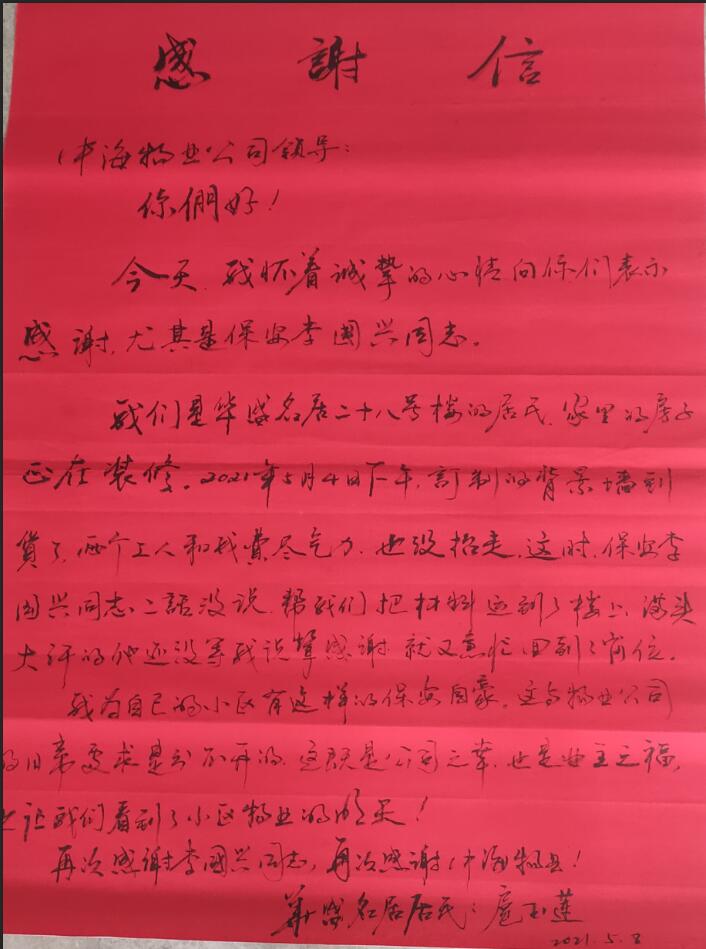 感謝信
中海物业公司领导：
你們好！
今天，我怀着诚挚的心情向你们表示
感谢，尤其是保安李國兴同志。
我们是华盛名居二十八号楼的居民，家里的房子
正在装修。2021年5月4日下午，訂制的背景墙到
貨了，两个工人和我費尽气力，也没抬走，这时，保安李
國兴同志二話没说，帮我们把材料运到了楼上，满头
大汗的他还没等我说聲感谢，就又急忙回到了岗位。
我为自己的小区有这样的保安自豪，这与物业公司
的日常要求是分不开的，这既是公司之幸，也是业主之福，
让我们看到了小区物业的明天！
再次感谢李國兴同志，再次感谢中海物业！
華盛名居居民：扈玉莲
2021.5.